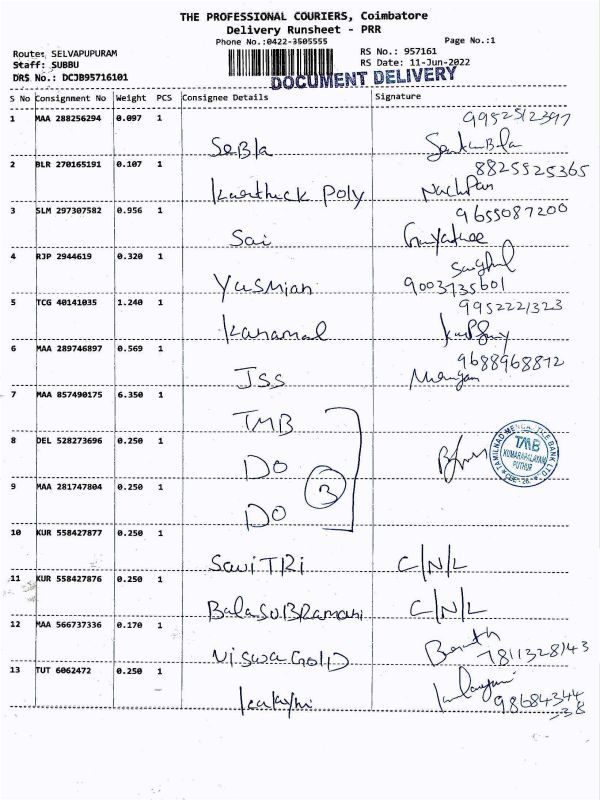 THE PROFESSIONAL COURIERS, Coimbatore
Delivery Runsheet - PRR
Phone No.:0422-3505555
Page No.:1
Route: SELVAPUPURAM
RS No.: 957161
Staff: SUBBU
RS Date: 11-Jun-2022
DRS No.: DCJB95716101
DOCUMENT DELIVERY
S No Consignment No Weight PCS Consignee Details Signature
1 MAA 288256294 0.097 1
SeBla
2 BLR 270165191 0.107 1
8825525365
Karthick Poly
3 SLM 297307582 0.956 1
9655087200
Sai
4 RJP 2944619 0.320 1
Yusmian 9003735601
5 TCG 40141035 1.240 1
9952221323
6 MAA 289746897 0.569 1
9688968812
JSS
7 MAA 857490175 6.350 1
TMB
8 DEL 528273696 0.250 1
DO
3
TAMILNAD MERCANTILE BANK LTD.
TMB
KUMARAPALAYAM
PUTHUR
CBE-26
9 MAA 281747804 0.250 1
DO
10 KUR 558427877 0.250 1
SaviTRi C/N/L
11 KUR 558427876 0.250 1
BalaSUBRamani C/N/L
12 MAA 566737336 0.170 1
Niswa GOLD 7811328143
13 TUT 6062472 0.250 1
98684344
38